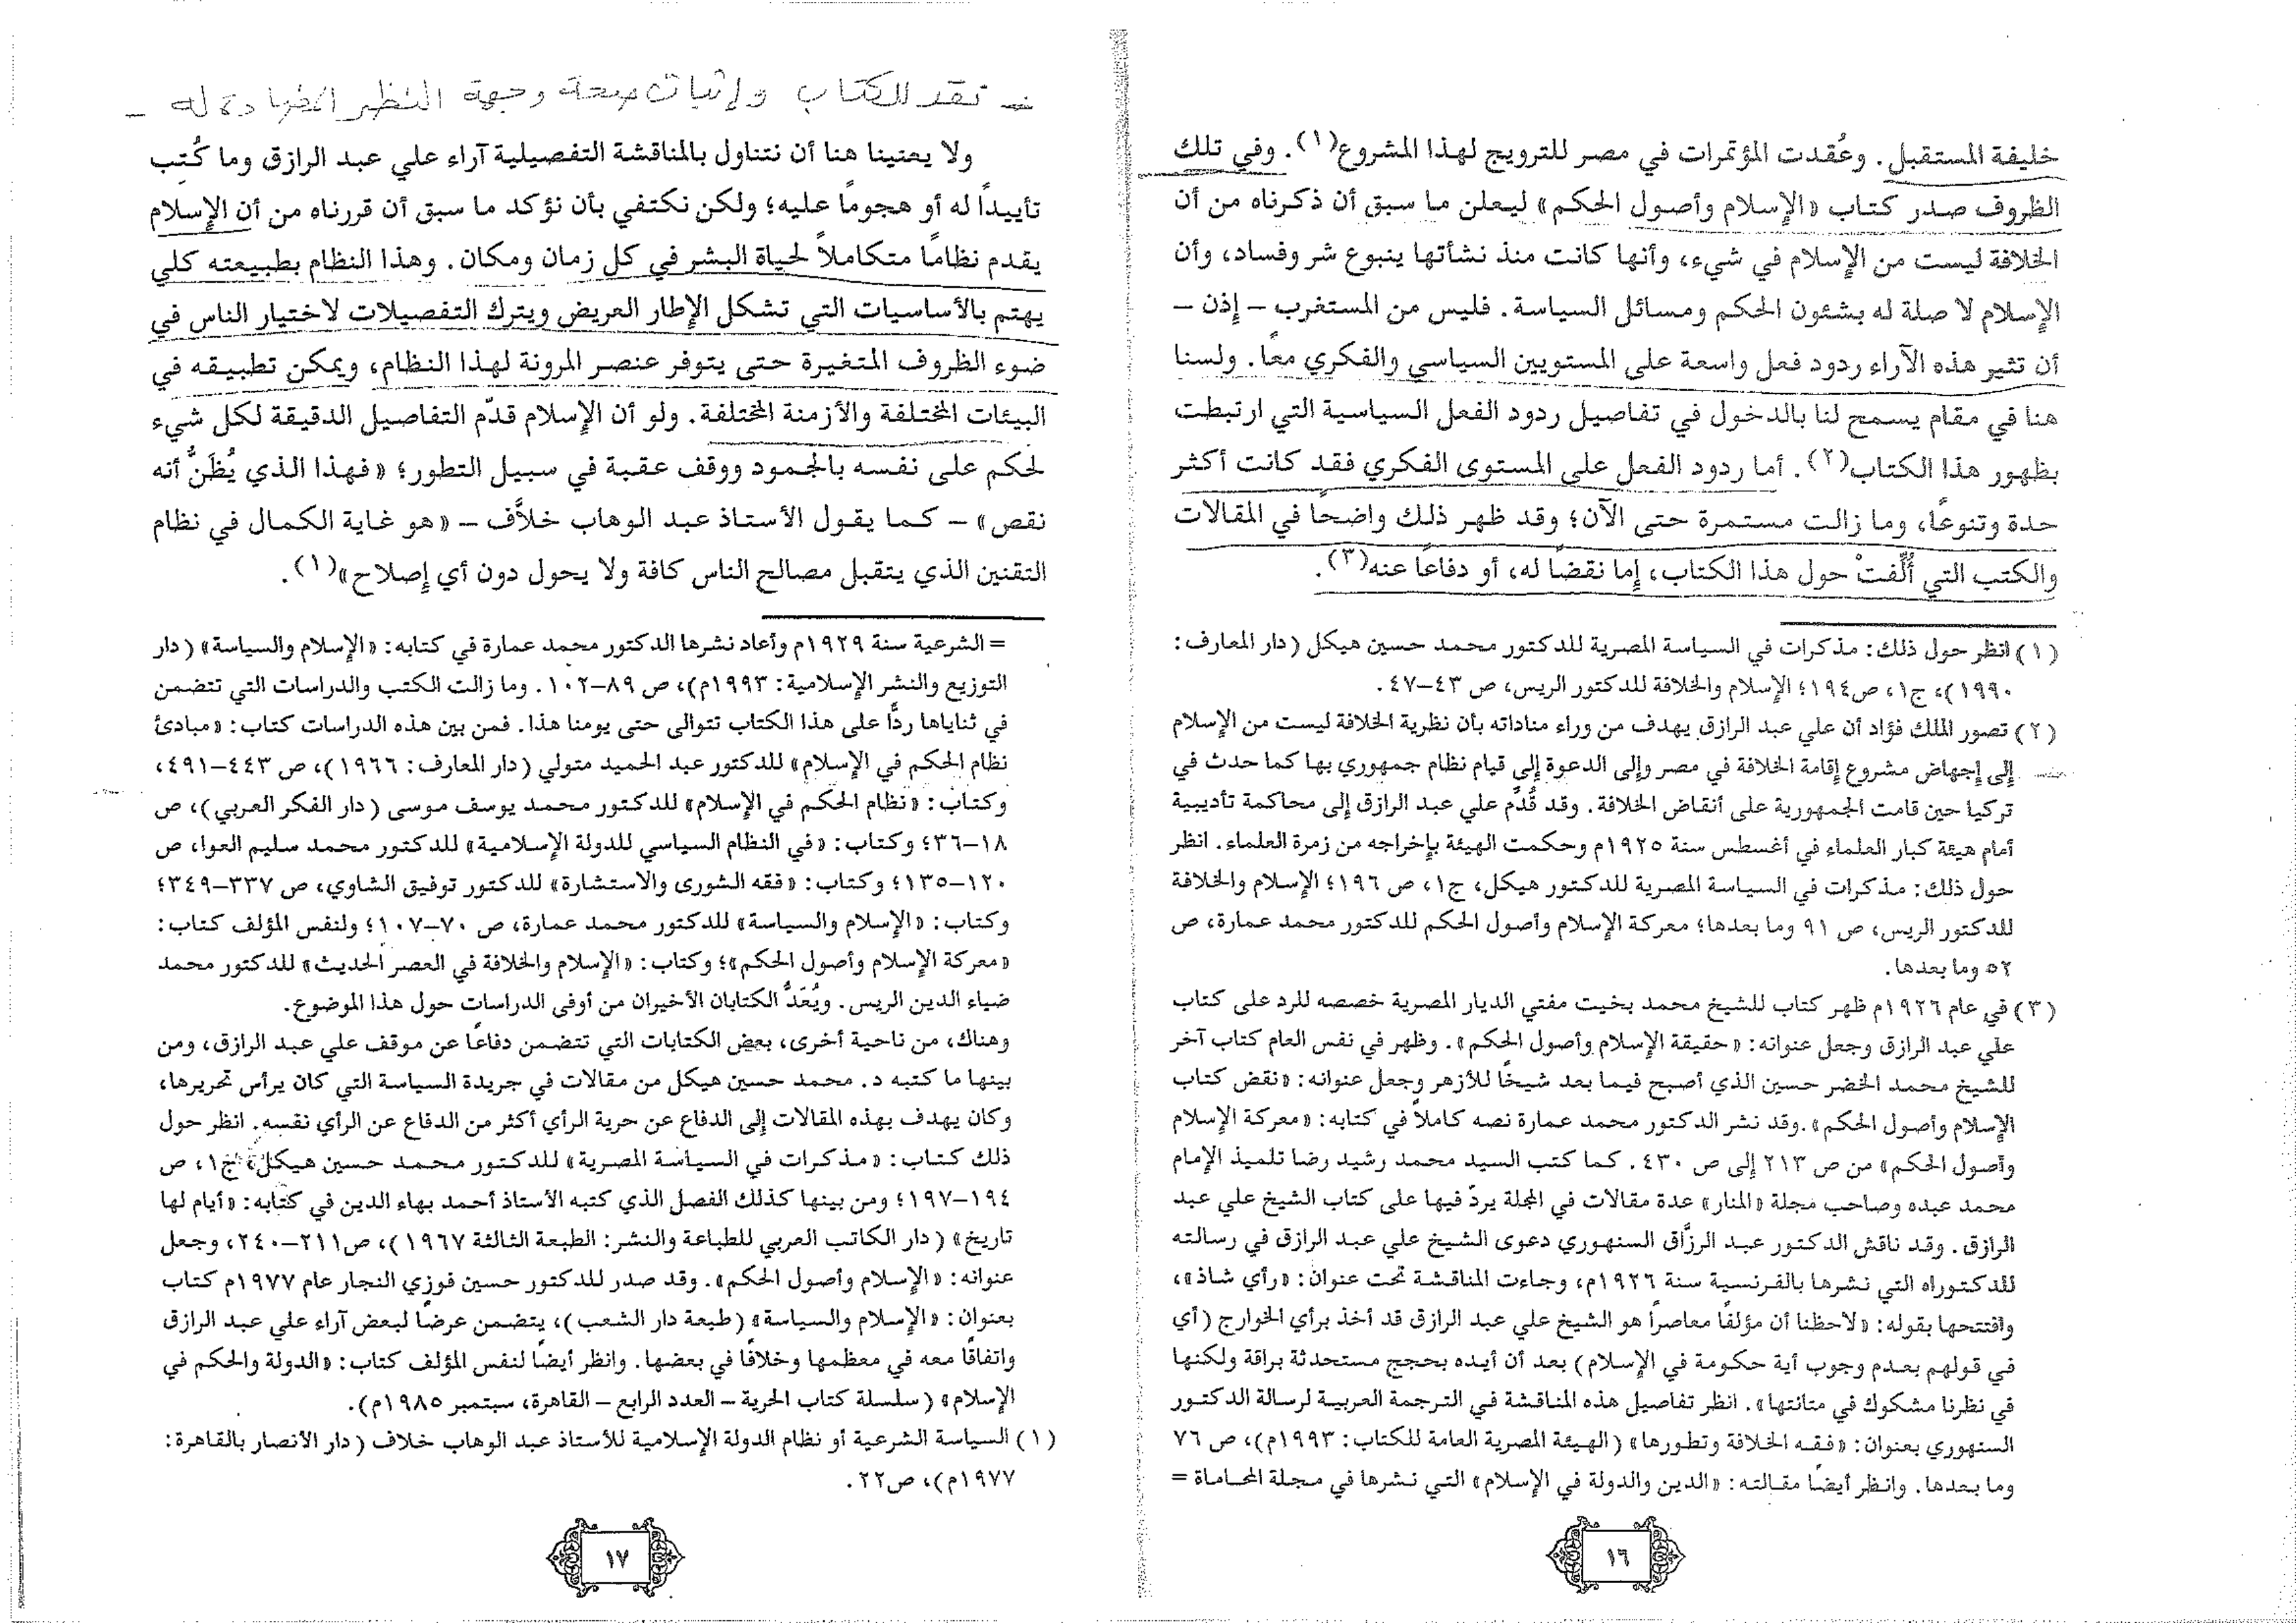 خليفة المستقبل. وعُقدت المؤتمرات في مصر للترويج لهذا المشروع(١). وفي تلك
الظروف صدر كتاب «الإسلام وأصول الحكم» ليعلن ما سبق أن ذكرناه من أن
الخلافة ليست من الإسلام في شيء، وأنها كانت منذ نشأتها ينبوع شر وفساد، وأن
الإسلام لا صلة له بشئون الحكم ومسائل السياسة. فليس من المستغرب – إذن –
أن تثير هذه الآراء ردود فعل واسعة على المستويين السياسي والفكري معًا. ولسنا
هنا في مقام يسمح لنا بالدخول في تفاصيل ردود الفعل السياسية التي ارتبطت
بظهور هذا الكتاب(٢). أما ردود الفعل على المستوى الفكري فقد كانت أكثر
حدة وتنوعًا، وما زالت مستمرة حتى الآن؛ وقد ظهر ذلك واضحًا في المقالات
والكتب التي أُلّفتْ حول هذا الكتاب، إما نقضًا له، أو دفاعًا عنه(٣).
(١) انظر حول ذلك: مذكرات في السياسة المصرية للدكتور محمد حسين هيكل (دار المعارف:
١٩٩٠)، ج١، ص١٩٤؛ الإسلام والخلافة للدكتور الريس، ص ٤٣–٤٧.
(٢) تصور الملك فؤاد أن علي عبد الرازق يهدف من وراء مناداته بأن نظرية الخلافة ليست من الإسلام
إلى إجهاض مشروع إقامة الخلافة في مصر وإلى الدعوة إلى قيام نظام جمهوري بها كما حدث في
تركيا حين قامت الجمهورية على أنقاض الخلافة. وقد قُدّم علي عبد الرازق إلى محاكمة تأديبية
أمام هيئة كبار العلماء في أغسطس سنة ١٩٢٥م وحكمت الهيئة بإخراجه من زمرة العلماء. انظر
حول ذلك: مذكرات في السياسة المصرية للدكتور هيكل، ج١، ص ١٩٦؛ الإسلام والخلافة
للدكتور الريس، ص ٩١ وما بعدها؛ معركة الإسلام وأصول الحكم للدكتور محمد عمارة، ص
٥٢ وما بعدها.
(٣) في عام ١٩٢٦م ظهر كتاب للشيخ محمد بخيت مفتي الديار المصرية خصصه للرد على كتاب
علي عبد الرازق وجعل عنوانه: «حقيقة الإسلام وأصول الحكم». وظهر في نفس العام كتاب آخر
للشيخ محمد الخضر حسين الذي أصبح فيما بعد شيخًا للأزهر وجعل عنوانه: «نقض كتاب
الإسلام وأصول الحكم».وقد نشر الدكتور محمد عمارة نصه كاملاً في كتابه: «معركة الإسلام
وأصول الحكم» من ص ٢١٣ إلى ص ٤٣٠. كما كتب السيد محمد رشيد رضا تلميذ الإمام
محمد عبده وصاحب مجلة «المنار» عدة مقالات في المجلة يردّ فيها على كتاب الشيخ علي عبد
الرازق. وقد ناقش الدكتور عبد الرزَّاق السنهوري دعوى الشيخ علي عبد الرازق في رسالته
للدكتوراه التي نشرها بالفرنسية سنة ١٩٢٦م، وجاءت المناقشة تحت عنوان: «رأي شاذ»،
وافتتحها بقوله: «لاحظنا أن مؤلفًا معاصراً هو الشيخ علي عبد الرازق قد أخذ برأي الخوارج (أي
في قولهم بعدم وجوب أية حكومة في الإسلام) بعد أن أيده بحجج مستحدثة براقة ولكنها
في نظرنا مشكوك في متانتها». انظر تفاصيل هذه المناقشة في الترجمة العربية لرسالة الدكتور
السنهوري بعنوان: «فقه الخلافة وتطورها» (الهيئة المصرية العامة للكتاب: ١٩٩٣م)، ص ٧٦
وما بعدها. وانظر أيضًا مقالته: «الدين والدولة في الإسلام» التي نشرها في مجلة المحاماة =
١٦
– نقد الكتاب وإثبات صحة وجهة النظر المضادة له –
ولا يعنينا هنا أن نتناول بالمناقشة التفصيلية آراء علي عبد الرازق وما كُتِب
تأييداً له أو هجومًا عليه؛ ولكن نكتفي بأن نؤكد ما سبق أن قررناه من أن الإسلام
يقدم نظامًا متكاملاً لحياة البشر في كل زمان ومكان. وهذا النظام بطبيعته كلي
يهتم بالأساسيات التي تشكل الإطار العريض ويترك التفصيلات لاختيار الناس في
ضوء الظروف المتغيرة حتى يتوفر عنصر المرونة لهذا النظام، ويمكن تطبيقه في
البيئات المختلفة والأزمنة المختلفة. ولو أن الإسلام قدّم التفاصيل الدقيقة لكل شيء
لحكم على نفسه بالجمود ووقف عقبة في سبيل التطور؛ «فهذا الذي يُظَنُّ أنه
نقص» – كما يقول الأستاذ عبد الوهاب خلاَّف – «هو غاية الكمال في نظام
التقنين الذي يتقبل مصالح الناس كافة ولا يحول دون أي إصلاح»(١).
= الشرعية سنة ١٩٢٩م وأعاد نشرها الدكتور محمد عمارة في كتابه: «الإسلام والسياسة» (دار
التوزيع والنشر الإسلامية: ١٩٩٣م)، ص ٨٩–١٠٢. وما زالت الكتب والدراسات التي تتضمن
في ثناياها ردًّا على هذا الكتاب تتوالى حتى يومنا هذا. فمن بين هذه الدراسات كتاب: «مبادئ
نظام الحكم في الإسلام» للدكتور عبد الحميد متولي (دار المعارف: ١٩٦٦)، ص ٤٤٣–٤٩١،
وكتاب: «نظام الحكم في الإسلام» للدكتور محمد يوسف موسى (دار الفكر العربي)، ص
١٨–٣٦؛ وكتاب: «في النظام السياسي للدولة الإسلامية» للدكتور محمد سليم العوا، ص
١٢٠–١٣٥؛ وكتاب: «فقه الشورى والاستشارة» للدكتور توفيق الشاوي، ص ٣٣٧–٣٤٩؛
وكتاب: «الإسلام والسياسة» للدكتور محمد عمارة، ص ٧٠–١٠٧؛ ولنفس المؤلف كتاب:
«معركة الإسلام وأصول الحكم»؛ وكتاب: «الإسلام والخلافة في العصر الحديث» للدكتور محمد
ضياء الدين الريس. ويُعَدُّ الكتابان الأخيران من أوفى الدراسات حول هذا الموضوع.
وهناك، من ناحية أخرى، بعض الكتابات التي تتضمن دفاعًا عن موقف علي عبد الرازق، ومن
بينها ما كتبه د. محمد حسين هيكل من مقالات في جريدة السياسة التي كان يرأس تحريرها،
وكان يهدف بهذه المقالات إلى الدفاع عن حرية الرأي أكثر من الدفاع عن الرأي نفسه. انظر حول
ذلك كتاب: «مذكرات في السياسة المصرية» للدكتور محمد حسين هيكل، ج١، ص
١٩٤–١٩٧؛ ومن بينها كذلك الفصل الذي كتبه الأستاذ أحمد بهاء الدين في كتابه: «أيام لها
تاريخ» (دار الكاتب العربي للطباعة والنشر: الطبعة الثالثة ١٩٦٧)، ص٢١١–٢٤٠، وجعل
عنوانه: «الإسلام وأصول الحكم». وقد صدر للدكتور حسين فوزي النجار عام ١٩٧٧م كتاب
بعنوان: «الإسلام والسياسة» (طبعة دار الشعب)، يتضمن عرضًا لبعض آراء علي عبد الرازق
واتفاقًا معه في معظمها وخلافًا في بعضها. وانظر أيضًا لنفس المؤلف كتاب: «الدولة والحكم في
الإسلام» (سلسلة كتاب الحرية – العدد الرابع – القاهرة، سبتمبر ١٩٨٥م).
(١) السياسة الشرعية أو نظام الدولة الإسلامية للأستاذ عبد الوهاب خلاف (دار الأنصار بالقاهرة:
١٩٧٧م)، ص٢٢.
١٧